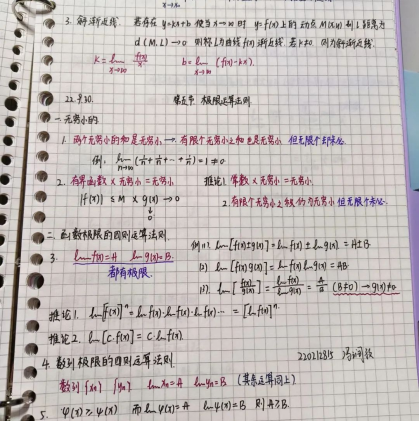 3. 斜渐近线. 若存在 y=kx+b 使当 x→∞ 时 y=f(x) 上的动点 M(x,y) 到 L 距离为
d(M,L)→0 则称 L 为曲线 f(x) 渐近线. 若 k≠0, 则为斜渐近线.
k = lim x→∞ f(x)/x b = lim x→∞ (f(x)-kx).
22.9.30. 第五节 极限运算法则.
一. 无穷小的
1. 两个无穷小的和是无穷小 → 有限个无穷小之和也是无穷小 但无限个却未必
例: lim n→∞ (1/n+1/n+…+1/n)=1≠0
2. 有界函数×无穷小=无穷小 推论1. 常数×无穷小=无穷小.
|f(x)| ≤ M × g(x)→0 2. 有限个无穷小之积仍为无穷小 但无限个未必.
↓
0
二. 函数极限的四则运算法则.
3. lim f(x)=A lim g(x)=B. 都有极限.
则(1) lim[f(x)±g(x)]=lim f(x)±lim g(x)=A±B
(2) lim[f(x)g(x)]=lim f(x)lim g(x)=AB
(3) lim[f(x)/g(x)]=lim f(x)/lim g(x)=A/B (B≠0)→g(x)≠0
推论1. lim[f(x)]ⁿ=lim f(x)·lim f(x)·lim f(x)…=[lim f(x)]ⁿ
推论2. lim[c·f(x)]=c·lim f(x)
4. 数列极限的四则运算法则 220212815
数列{xₙ} {yₙ} lim xₙ=A lim yₙ=B (其余运算同上)
5. φ(x)≥ψ(x) 而 lim φ(x)=A lim ψ(x)=B 则 A≥B.